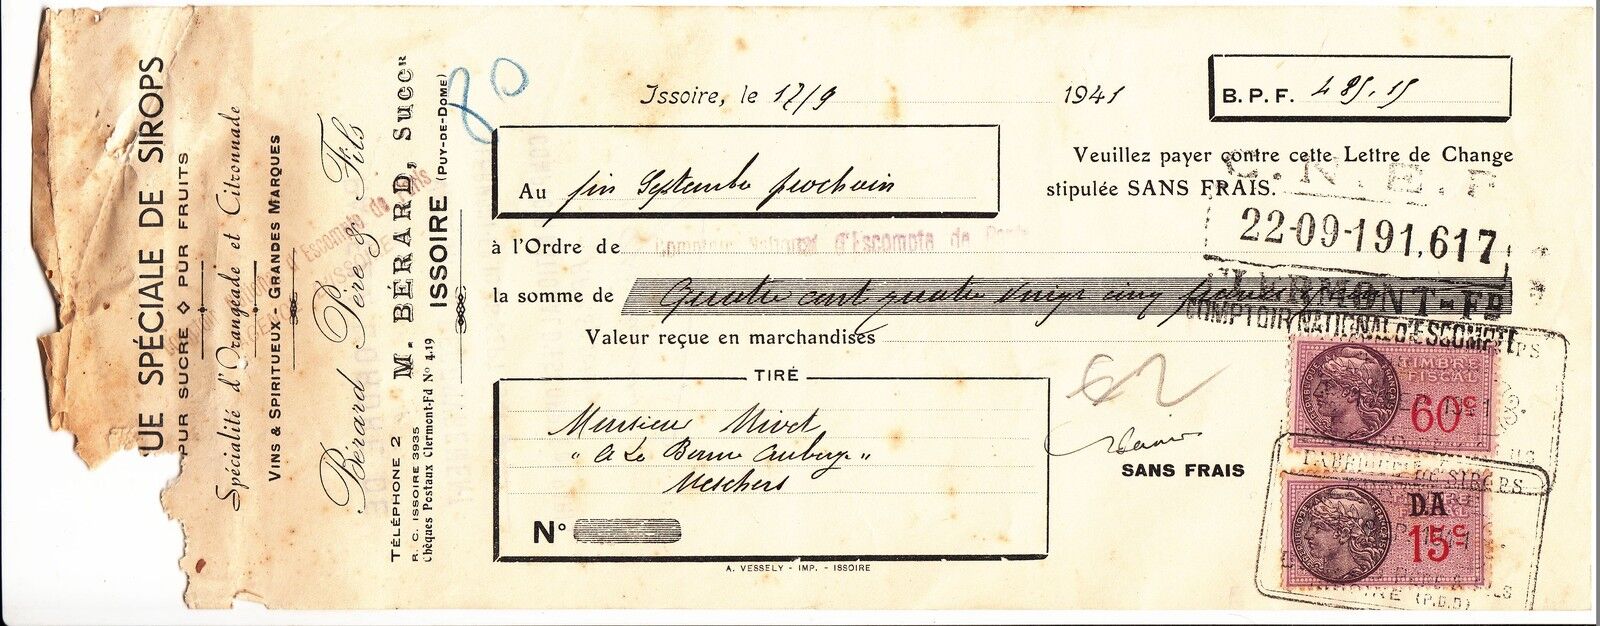 UE SPÉCIALE DE SIROPS
PUR SUCRE ◇ PUR FRUITS
Spécialité d'Orangeade et Citronnade
VINS & SPIRITUEUX - GRANDES MARQUES
Bérard Père & Fils
M. BÉRARD, Succʳ
ISSOIRE (PUY-DE-DOME)
TÉLÉPHONE 2
R. C. ISSOIRE 3935
Chèques Postaux Clermont-Fd Nº 4.19
80
Issoire, le 17/9 1941
B. P. F. 485,15
Au fin Septembre prochain
Veuillez payer contre cette Lettre de Change
stipulée SANS FRAIS.
C.N.E.P
22-09-191,617
CLERMONT-FD
COMPTOIR NATIONAL D'ESCOMPTE
à l'Ordre de Comptoir National d'Escompte de Paris
la somme de Quatre cent quatre vingt cinq francs
Valeur reçue en marchandises
TIRÉ
Monsieur Nivet
"A La Bonne Auberge"
Meschers
Nº
62
SANS FRAIS
TIMBRE
FISCAL
60c
FABRIQUE DE SIROPS
D.A
15c
(P.D.D)
A. VESSELY - IMP. - ISSOIRE